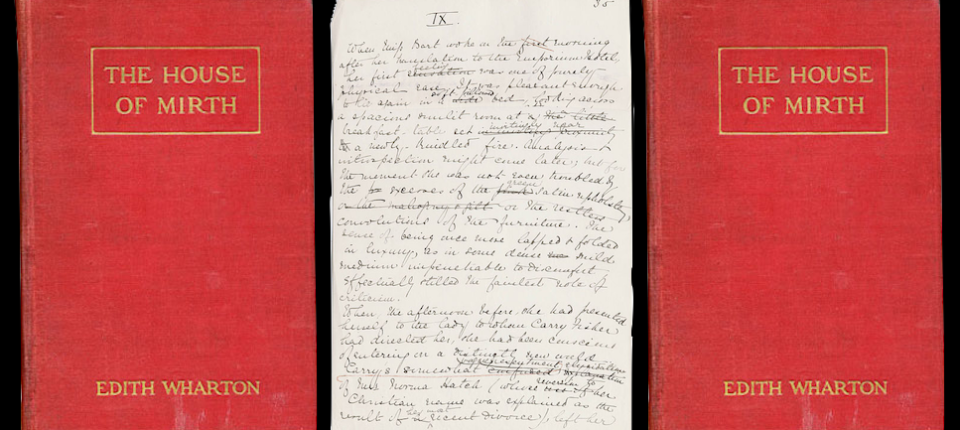 THE HOUSE
OF MIRTH
EDITH WHARTON
IX.
35
When Miss Bart woke on the first morning
after her translation to the Emporium Hotel,
her first feeling was one of purely
physical ease. It was pleasant enough
to lie again in a soft pillowed bed, looking across
a spacious sunlit room at a
breakfast-table set invitingly near
to a newly-kindled fire. Analysis &
introspection might come later; but for
the moment she was not even troubled by
the excesses of the green satin upholstery
or the mahogany & gilt or the restless
convolutions of the furniture. The
sense of being once more lapped & folded
in luxury, as in some dense mild
medium impenetrable to discomfort,
effectually stilled the faintest note of
criticism.
When, the afternoon before, she had presented
herself to the lady to whom Carry Fisher
had directed her, she had been conscious
of entering on a distinctly new world.
Carry's somewhat
of Mrs Norma Hatch (whose reversion to her
Christian name was explained as the
result of her recent divorce), left her
THE HOUSE
OF MIRTH
EDITH WHARTON